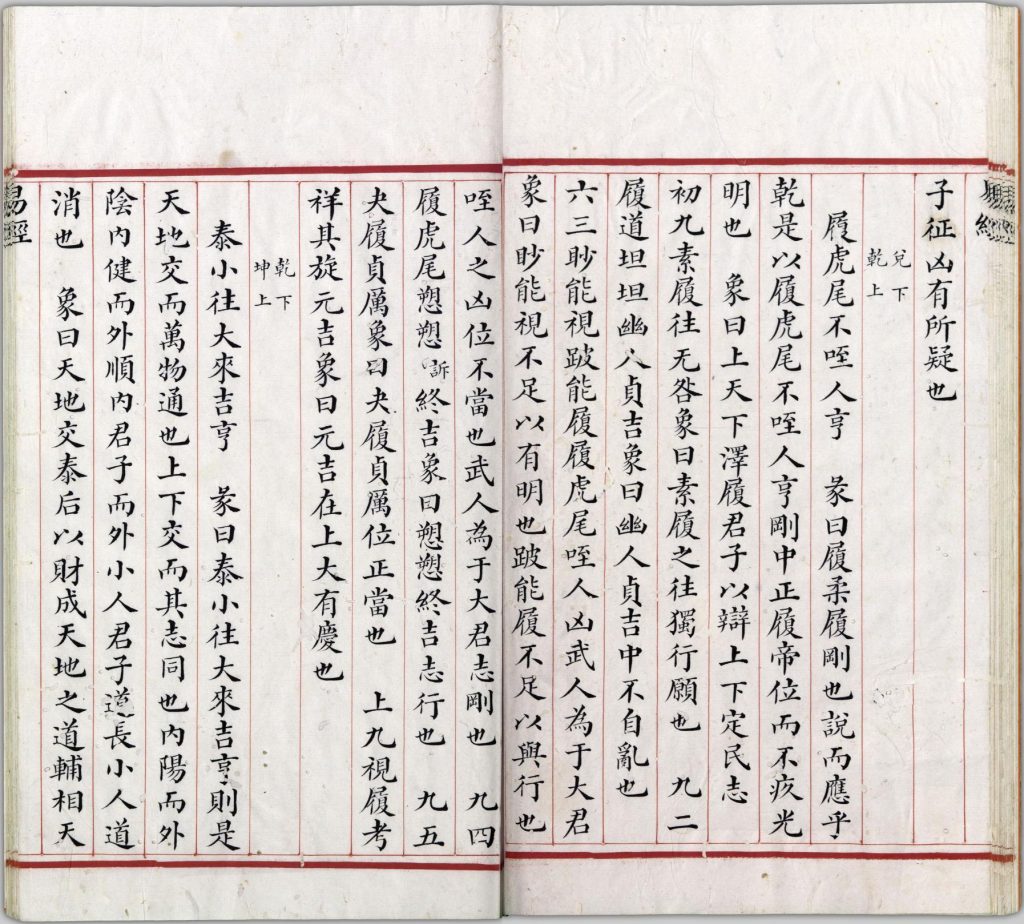 易經
子征凶有所疑也
兌下
乾上
履虎尾不咥人亨　彖曰履柔履剛也說而應乎
乾是以履虎尾不咥人亨剛中正履帝位而不疚光
明也　象曰上天下澤履君子以辯上下定民志
初九素履往无咎象曰素履之往獨行願也　九二
履道坦坦幽人貞吉象曰幽人貞吉中不自亂也
六三眇能視跛能履履虎尾咥人凶武人為于大君
象曰眇能視不足以有明也跛能履不足以與行也
咥人之凶位不當也武人為于大君志剛也　九四
履虎尾愬愬訴終吉象曰愬愬終吉志行也　九五
夬履貞厲象曰夬履貞厲位正當也　上九視履考
祥其旋元吉象曰元吉在上大有慶也
乾下
坤上
泰小往大來吉亨　彖曰泰小往大來吉亨則是
天地交而萬物通也上下交而其志同也內陽而外
陰內健而外順內君子而外小人君子道長小人道
消也　象曰天地交泰后以財成天地之道輔相天
易經